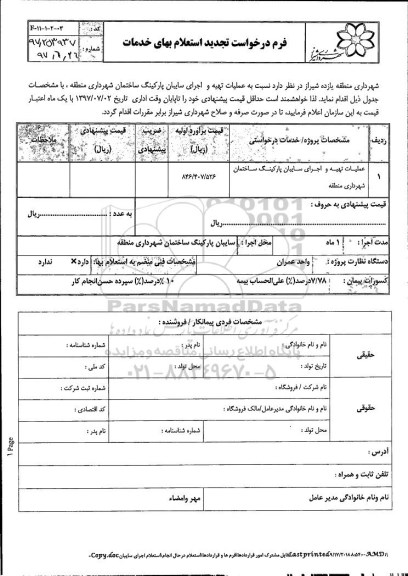 فرم درخواست تجدید استعلام بهای خدمات
کد : F-11-1-2-03
شماره :
شهرداری منطقه یازده شیراز در نظر دارد نسبت به عملیات تهیه و اجرای سایبان پارکینگ ساختمان شهرداری منطقه ، با مشخصات
جدول ذیل اقدام نماید. لذا خواهشمند است حداقل قیمت پیشنهادی خود را تاپایان وقت اداری تاریخ ۱۳۹۷/۰۷/۰۲ با یک ماه اعتبار
قیمت به این سازمان اعلام فرمایید، تا در صورت صرفه و صلاح شهرداری شیراز برابر مقررات اقدام گردد.
ردیف
مشخصات پروژه/ خدمات درخواستی
قیمت برآورد اولیه (ریال)
ضریب پیشنهادی
قیمت پیشنهادی (ریال)
ملاحظات
۱
عملیات تهیه و اجرای سایبان پارکینگ ساختمان
شهرداری منطقه
۸۴۶/۴۰۷/۵۲۶
قیمت پیشنهادی به حروف :
ریال
به عدد : ریال
مدت اجرا : ۱ ماه
محل اجرا : سایبان پارکینگ ساختمان شهرداری منطقه
دستگاه نظارت پروژه : واحد عمران
مشخصات فنی منضم به استعلام بها: دارد× ندارد
کسورات پیمان : ۷/۷۸درصد(٪) علی‌الحساب بیمه ۱۰ درصد(٪) سپرده حسن‌انجام کار
ParsNamadData
پایگاه اطلاع رسانی مناقصه و مزایده
۰۲۱-۸۸۳۴۹۶۷۰-۵
مشخصات فردی پیمانکار / فروشنده :
حقیقی
نام و نام خانوادگی :
نام پدر :
شماره شناسنامه :
تاریخ تولد :
محل تولد :
کد ملی :
حقوقی
نام شرکت / فروشگاه :
شماره ثبت شرکت :
نام و نام خانوادگی مدیرعامل/مالک فروشگاه :
کد اقتصادی :
محل تولد :
شماره شناسنامه :
نام پدر :
آدرس :
تلفن ثابت و همراه :
نام ونام خانوادگی مدیر عامل
مهر وامضاء
1 Page